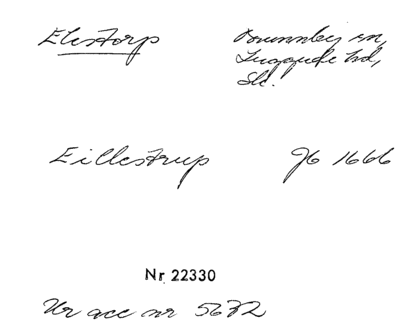 Elestorp
Brunnby sn,
Luggude hd,
Skå.
Eillestrup
Jb 1666
Nr 22330
Ur acc nr 5672